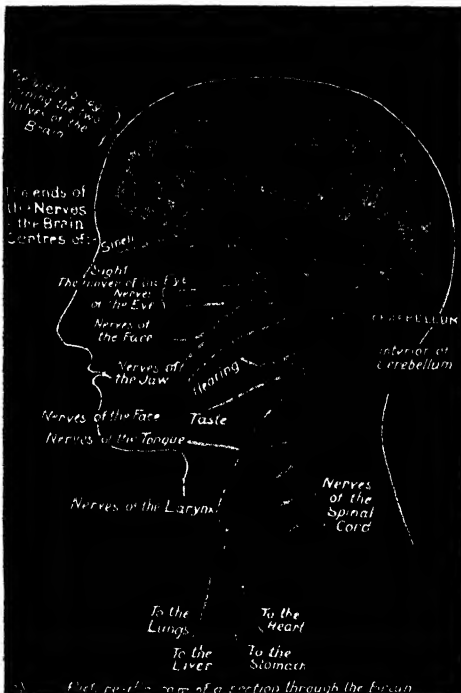 The
the two
halves of the
Brain
ends of
the Nerves
the Brain
Centres of:-
Smell
Sight
The mover of the Eye
Nerves
of the Eye
Nerves of
the Face
Nerves of
the Jaw
Hearing
Nerves of the Face
Taste
Nerves of the Tongue
CEREBELLUM
Interior of
Cerebellum
Nerves of the Larynx
Nerves
of the
Spinal
Cord
To the
Lungs
To the
Heart
To the
Liver
To the
Stomach
of a section through the Brain